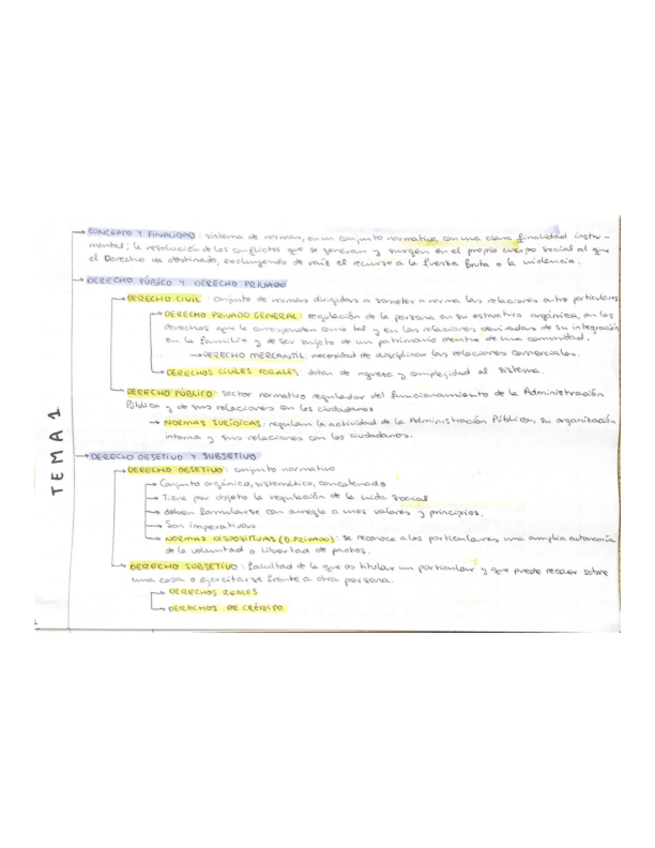 TEMA 1
CONCEPTO Y FINALIDAD: sistema de normas, en un conjunto normativo, con una clara finalidad instru-
mental; la resolución de los conflictos que se generan y surgen en el propio cuerpo social al que
el Derecho va destinado, excluyendo de raíz el recurso a la fuerza bruta o la violencia.
DERECHO PÚBLICO Y DERECHO PRIVADO
DERECHO CIVIL: conjunto de normas dirigidas a someter a norma las relaciones entre particulares
DERECHO PRIVADO GENERAL: regulación de la persona en su estructura orgánica, en los
derechos que le corresponden como tal y en las relaciones derivadas de su integración
en la familia y de ser sujeto de un patrimonio dentro de una comunidad.
DERECHO MERCANTIL: necesidad de disciplinar las relaciones comerciales.
DERECHOS CIVILES FORALES: dotan de riqueza y complejidad al sistema.
DERECHO PÚBLICO: sector normativo regulador del funcionamiento de la Administración
Pública y de sus relaciones con los ciudadanos
NORMAS JURÍDICAS: regulan la actividad de la Administración Pública, su organización
interna y sus relaciones con los ciudadanos.
DERECHO OBJETIVO Y SUBJETIVO
DERECHO OBJETIVO: conjunto normativo
Conjunto orgánico, sistemático, concatenado
Tiene por objeto la regulación de la vida social
deben formularse con arreglo a unos valores y principios.
Son imperativas
NORMAS DISPOSITIVAS (D.PRIVADO): se reconoce a los particulares una amplia autonomía
de la voluntad o libertad de pactos.
DERECHO SUBJETIVO: facultad de la que es titular un particular y que puede recaer sobre
una cosa o ejercitarse frente a otra persona.
DERECHOS REALES
DERECHOS DE CRÉDITO